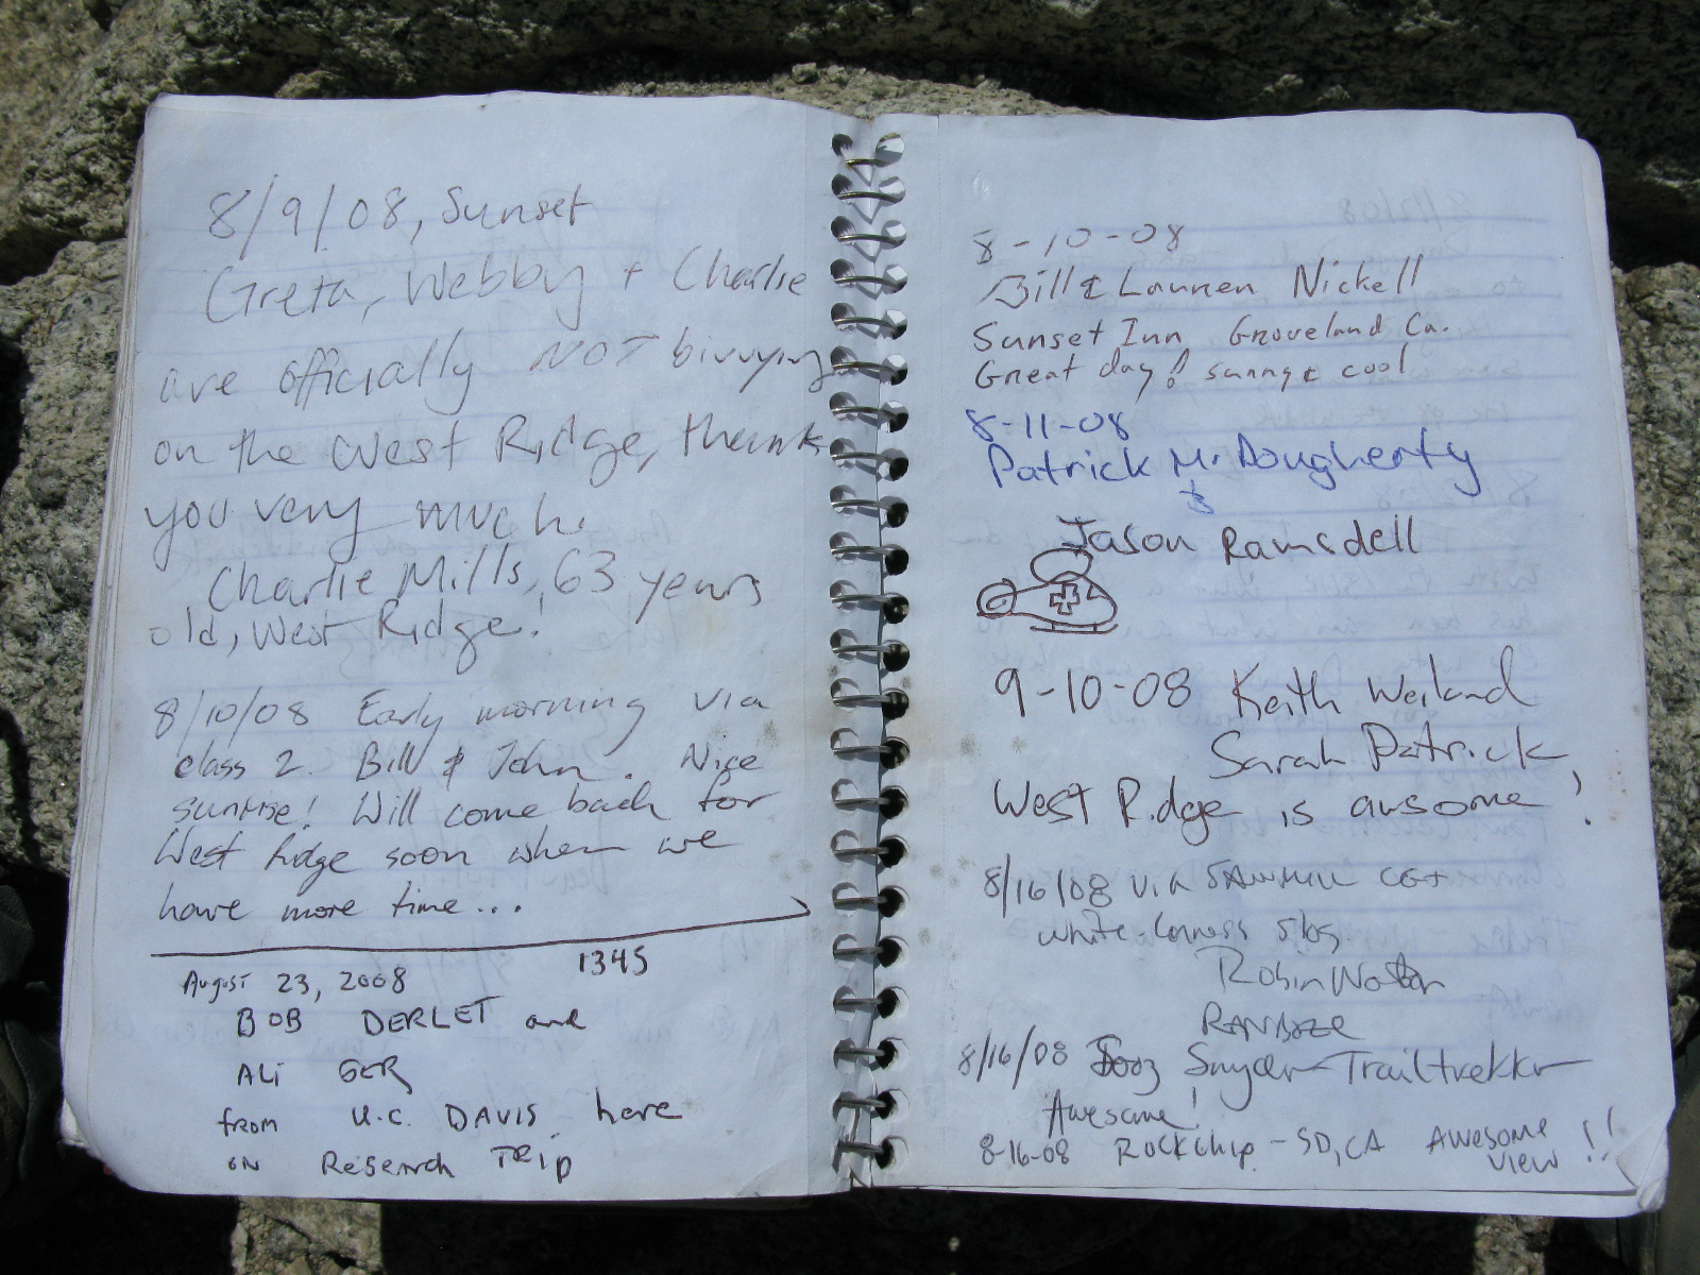 8/9/08, Sunset
Greta, Webby + Charlie
are officially NOT bivvying
on the West Ridge, thank
you very much.
Charlie Mills, 63 years
old, West Ridge!
8/10/08 Early morning via
class 2. Bill & John. Nice
sunrise! Will come back for
West Ridge soon when we
have more time...
August 23, 2008 1345
BOB DERLET and
ALI GER
from U.C. DAVIS here
on Research TRIP
8-10-08
Bill & Lauren Nickell
Sunset Inn Groveland Ca.
Great day! sunny & cool
8-11-08
Patrick McDougherty
&
Jason Ramsdell
9-10-08 Keith Weiland
Sarah Patrick
West Ridge is awsome!
8/16/08 VIA SAWMILL CG +
white-
Robin
8/16/08 Sooz Snyder-Trailtrekkr
Awesome!
8-16-08 Rockchip - SD, CA Awesome
view!!